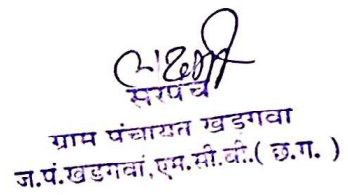 सरपंच
ग्राम पंचायत खड़गवा
ज.पं.खडगवां,एम.सी.बी.( छ.ग. )